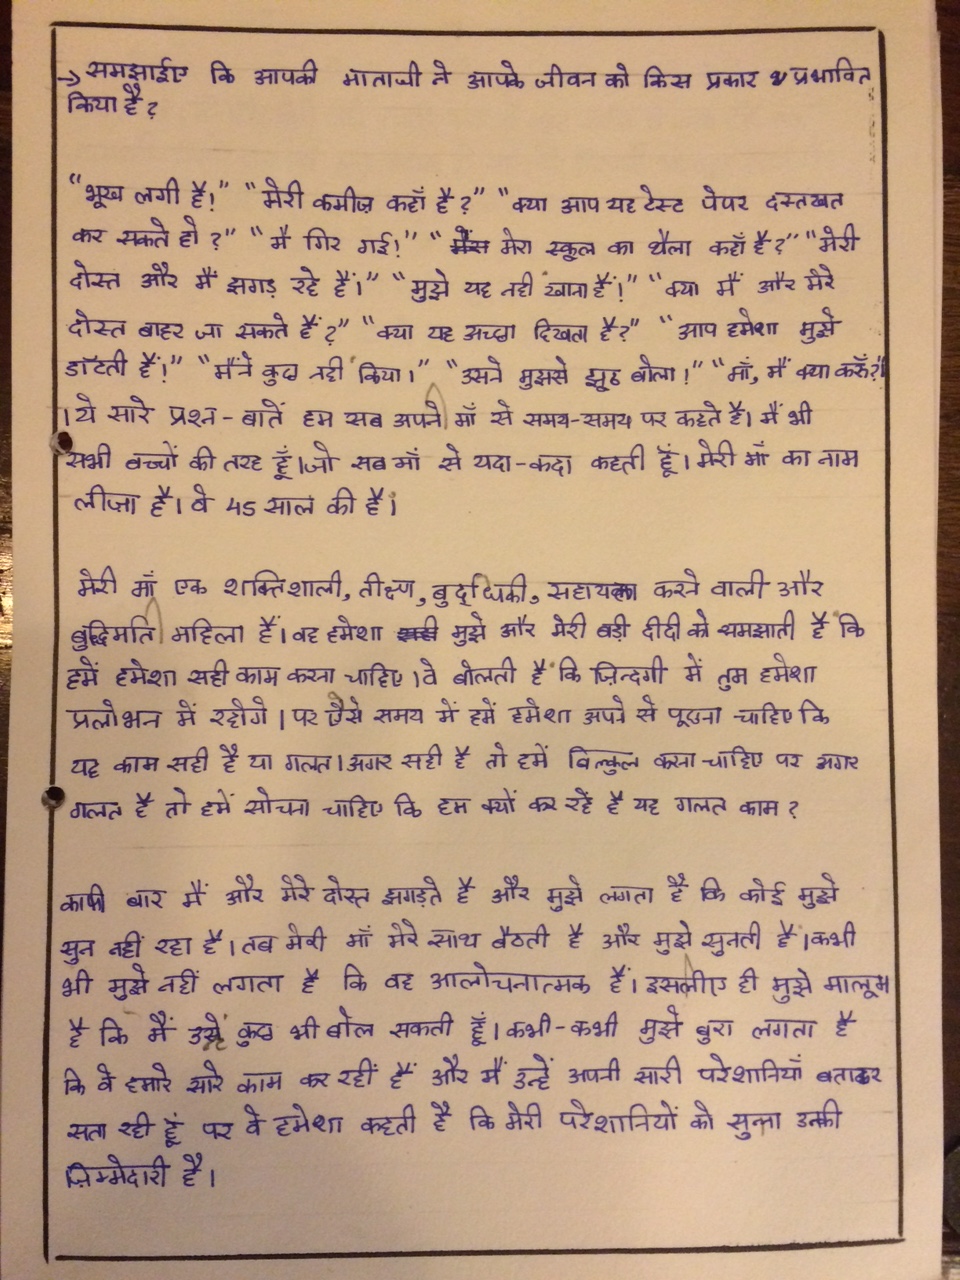 → समझाईए कि आपकी माताजी ने आपके जीवन को किस प्रकार प्रभावित
किया है?
"भूख लगी है!" "मेरी कमीज़ कहाँ है?" "क्या आप यह टेस्ट पेपर दस्तखत
कर सकते हो?" "मैं गिर गई!" "मेरा स्कूल का थैला कहाँ है?" "मेरी
दोस्त और मैं झगड़ रहे हैं।" "मुझे यह नही खाना है!" "क्या मैं और मेरे
दोस्त बाहर जा सकते हैं?" "क्या यह अच्छा दिखता है?" "आप हमेशा मुझे
डाँटती हैं!" "मैंने कुछ नही किया।" "उसने मुझसे झूठ बोला!" "माँ, मैं क्या करूँ?"
।ये सारे प्रश्न-बातें हम सब अपने माँ से समय-समय पर कहते है। मैं भी
सभी बच्चों की तरह हूँ।जो सब माँ से यदा-कदा कहती हूँ। मेरी माँ का नाम
लीज़ा है। वे 45 साल की है।
मेरी माँ एक शक्तिशाली, तीक्ष्ण, बुद्धिकी, सहायता करने वाली और
बुद्धिमति महिला हैं। वह हमेशा मुझे और मेरी बड़ी दीदी को समझाती है कि
हमें हमेशा सही काम करना चाहिए।वे बोलती है कि ज़िन्दगी में तुम हमेशा
प्रलोभन में रहोगे।पर ऐसे समय में हमें हमेशा अपने से पूछना चाहिए कि
यह काम सही है या गलत।अगर सही है तो हमें बिल्कुल करना चाहिए पर अगर
गलत है तो हमें सोचना चाहिए कि हम क्यों कर रहें है यह गलत काम?
काफी बार मैं और मेरे दोस्त झगड़ते है और मुझे लगता है कि कोई मुझे
सुन नहीं रहा है। तब मेरी माँ मेरे साथ बैठती है और मुझे सुनती है।कभी
भी मुझे नहीं लगता है कि वह आलोचनात्मक हैं। इसलीए ही मुझे मालूम
है कि मैं उसे कुछ भी बोल सकती हूँ। कभी-कभी मुझे बुरा लगता है
कि वे हमारे सारे काम कर रहीं हैं और मैं उन्हें अपनी सारी परेशानियाँ बताकर
सता रही हूँ पर वे हमेशा कहती है कि मेरी परेशानियों को सुनना उनकी
ज़िम्मेदारी है।